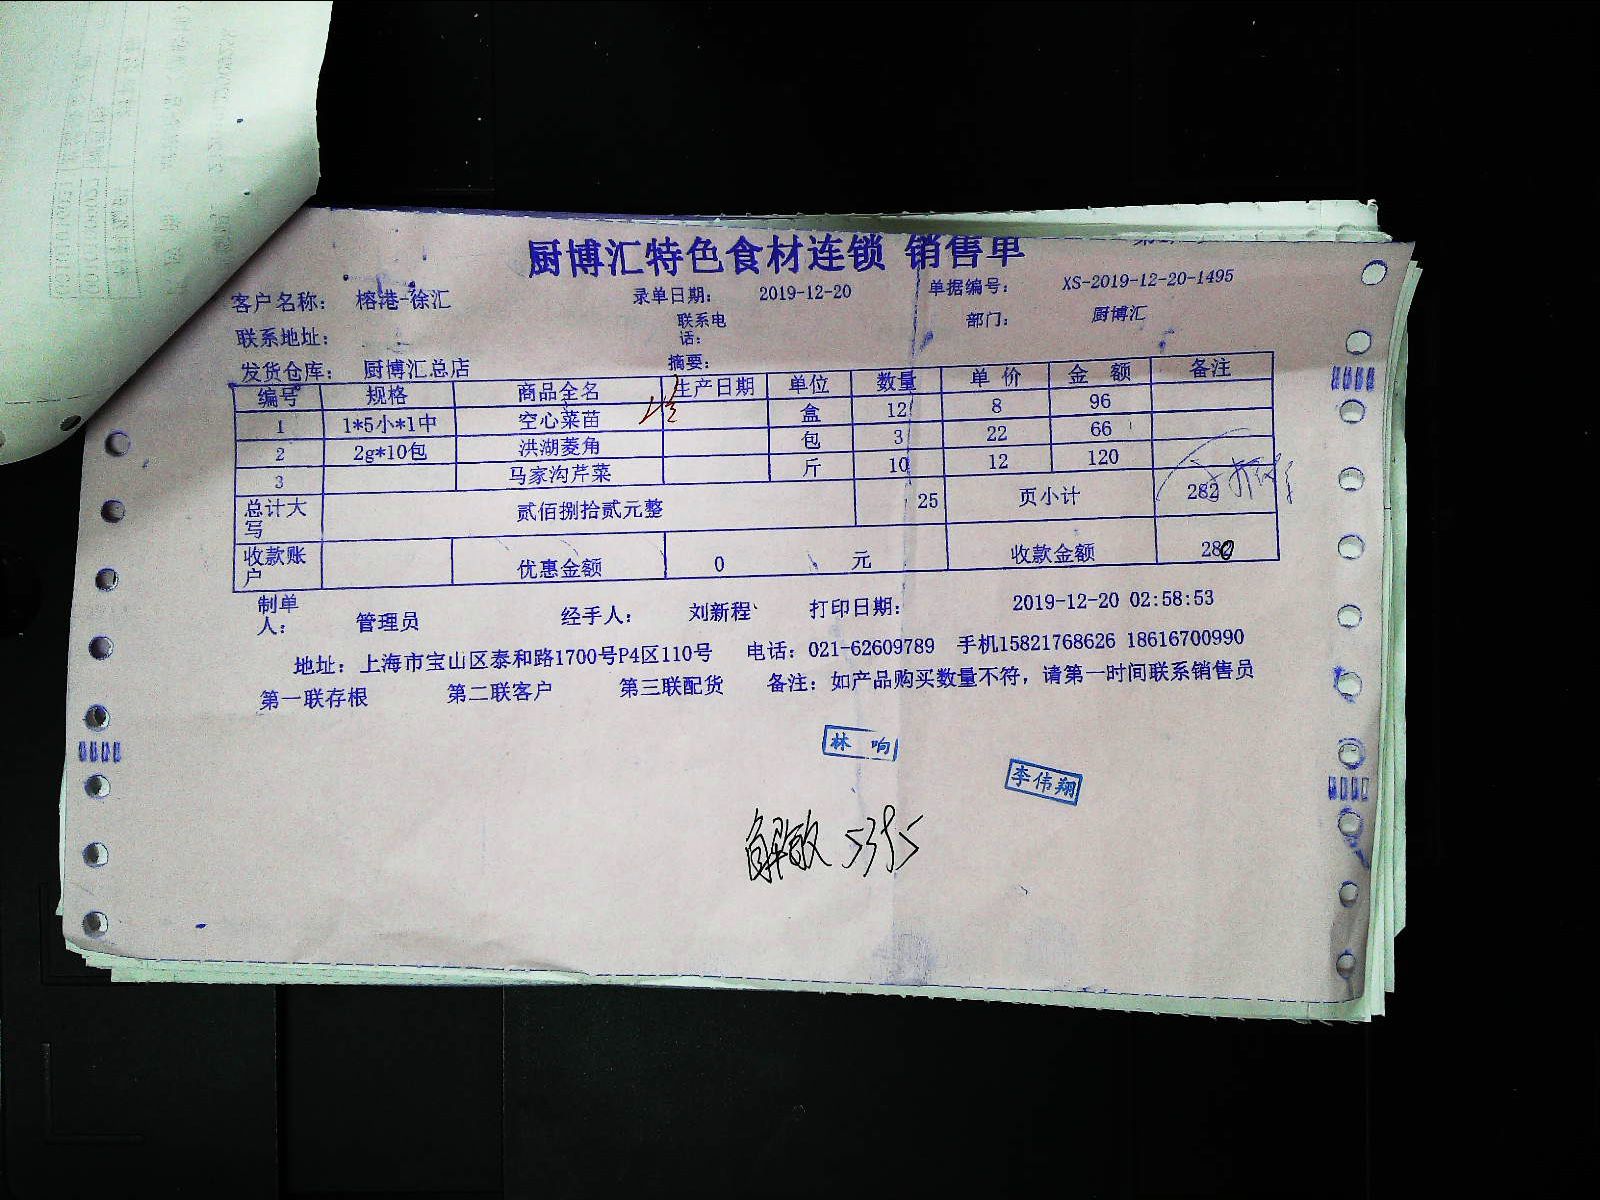 厨博汇特色食材连锁 销售单
客户名称： 榕港-徐汇 录单日期： 2019-12-20 单据编号： XS-2019-12-20-1495
联系地址： 联系电话： 部门： 厨博汇
发货仓库： 厨博汇总店 摘要：
编号 规格 商品全名 生产日期 单位 数量 单 价 金 额 备注
1 1*5小*1中 空心菜苗 盒 12 8 96
2 2g*10包 洪湖菱角 包 3 22 66
3 马家沟芹菜 斤 10 12 120
总计大写 贰佰捌拾贰元整 25 页小计 282
收款账户 优惠金额 0 元 收款金额 280
制单人： 管理员 经手人： 刘新程 打印日期： 2019-12-20 02:58:53
地址：上海市宝山区泰和路1700号P4区110号 电话：021-62609789 手机15821768626 18616700990
第一联存根 第二联客户 第三联配货 备注：如产品购买数量不符，请第一时间联系销售员
林 响
李伟翔